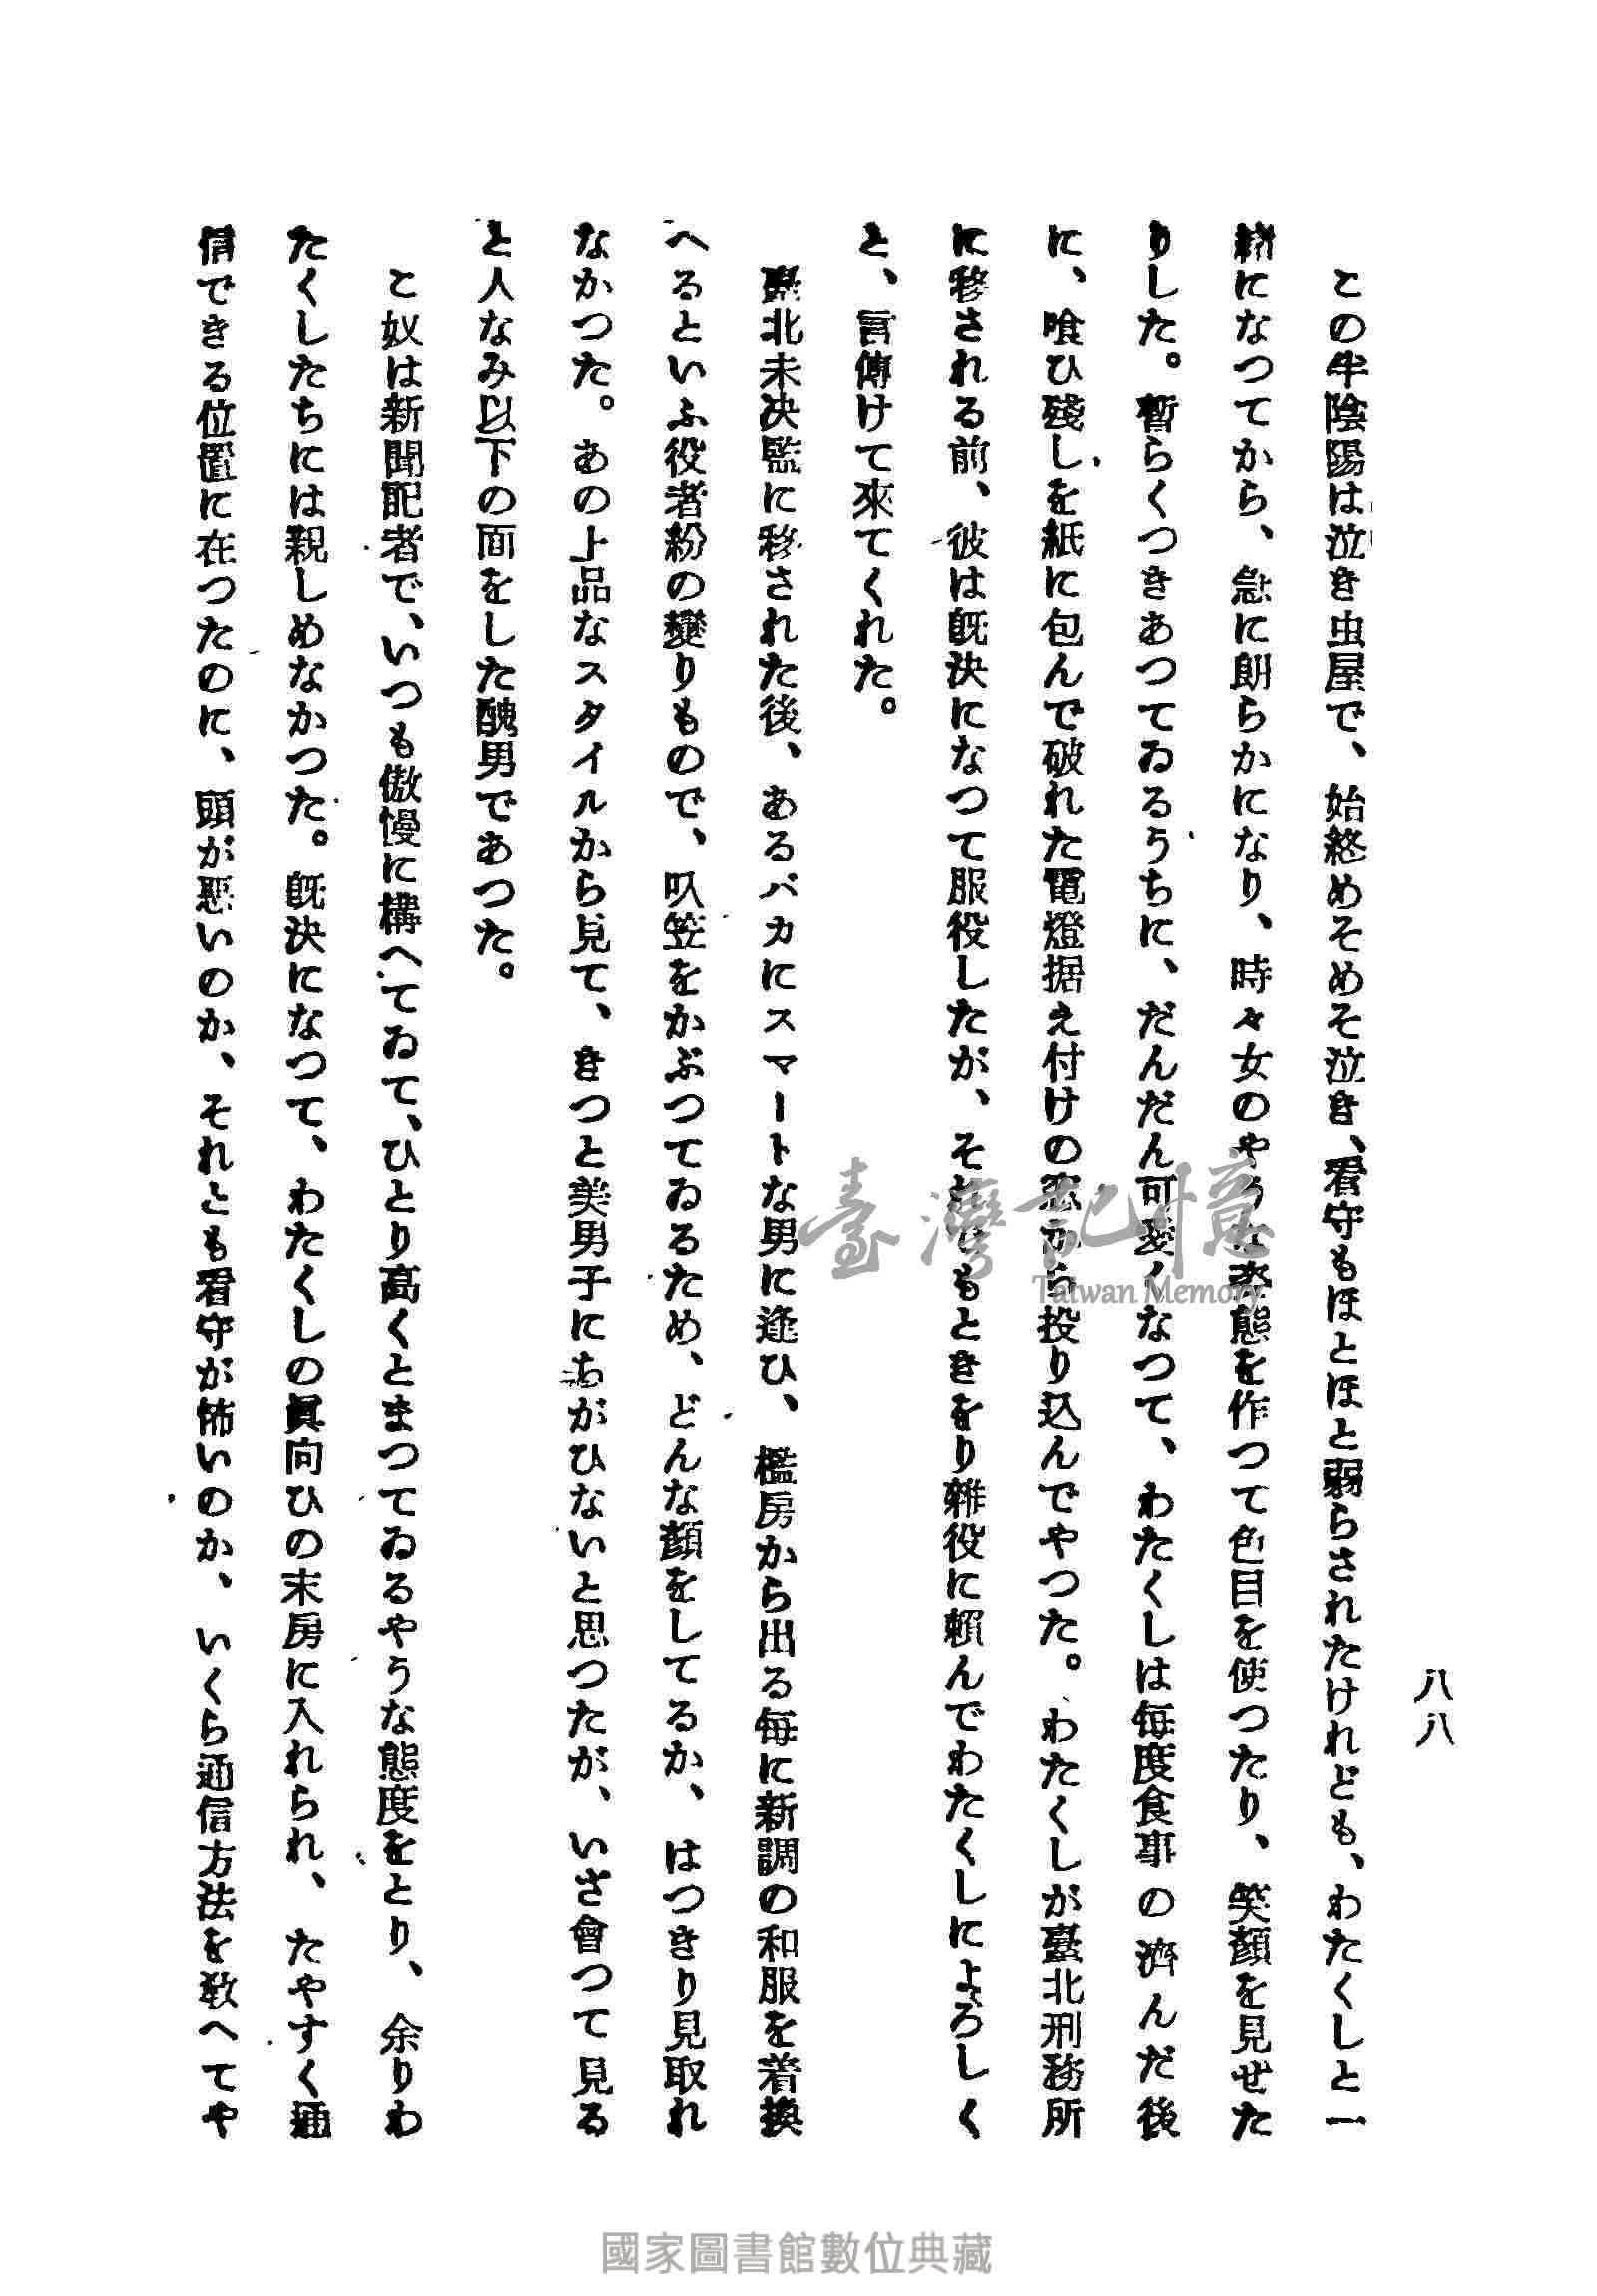 八八
この半陰陽は泣き虫屋で、始終めそめそ泣き、看守もほとほと弱らされたけれども、わたくしと一
緒になつてから、急に朗らかになり、時々女のやうな姿態を作つて色目を使つたり、笑顔を見せた
りした。暫らくつきあつてゐるうちに、だんだん可愛くなつて、わたくしは毎度食事の濟んだ後
に、喰ひ殘しを紙に包んで破れた電燈据え付けの窓から投り込んでやつた。わたくしが臺北刑務所
に移される前、彼は既決になつて服役したが、それでもときをり雜役に賴んでわたくしによろしく
と、言傳けて來てくれた。
臺北未决監に移された後、あるバカにスマートな男に逢ひ、檻房から出る毎に新調の和服を着換
へるといふ役者紛の變りもので、叺笠をかぶつてゐるため、どんな顏をしてるか、はつきり見取れ
なかつた。あの上品なスタイルから見て、きつと美男子にちがひないと思つたが、いざ會つて見る
と人なみ以下の面をした醜男であつた。
こ奴は新聞記者で、いつも傲慢に構へてゐて、ひとり高くとまつてゐるやうな態度をとり、余りわ
たくしたちには親しめなかつた。既決になつて、わたくしの眞向ひの末房に入れられ、たやすく通
信できる位置に在つたのに、頭が悪いのか、それとも看守が怖いのか、いくら通信方法を敎へてや
臺灣記憶
Taiwan Memory
國家圖書館數位典藏